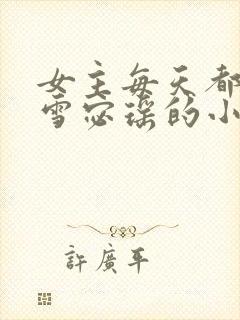 女主每天都
雪宓瑶的小
許廣平